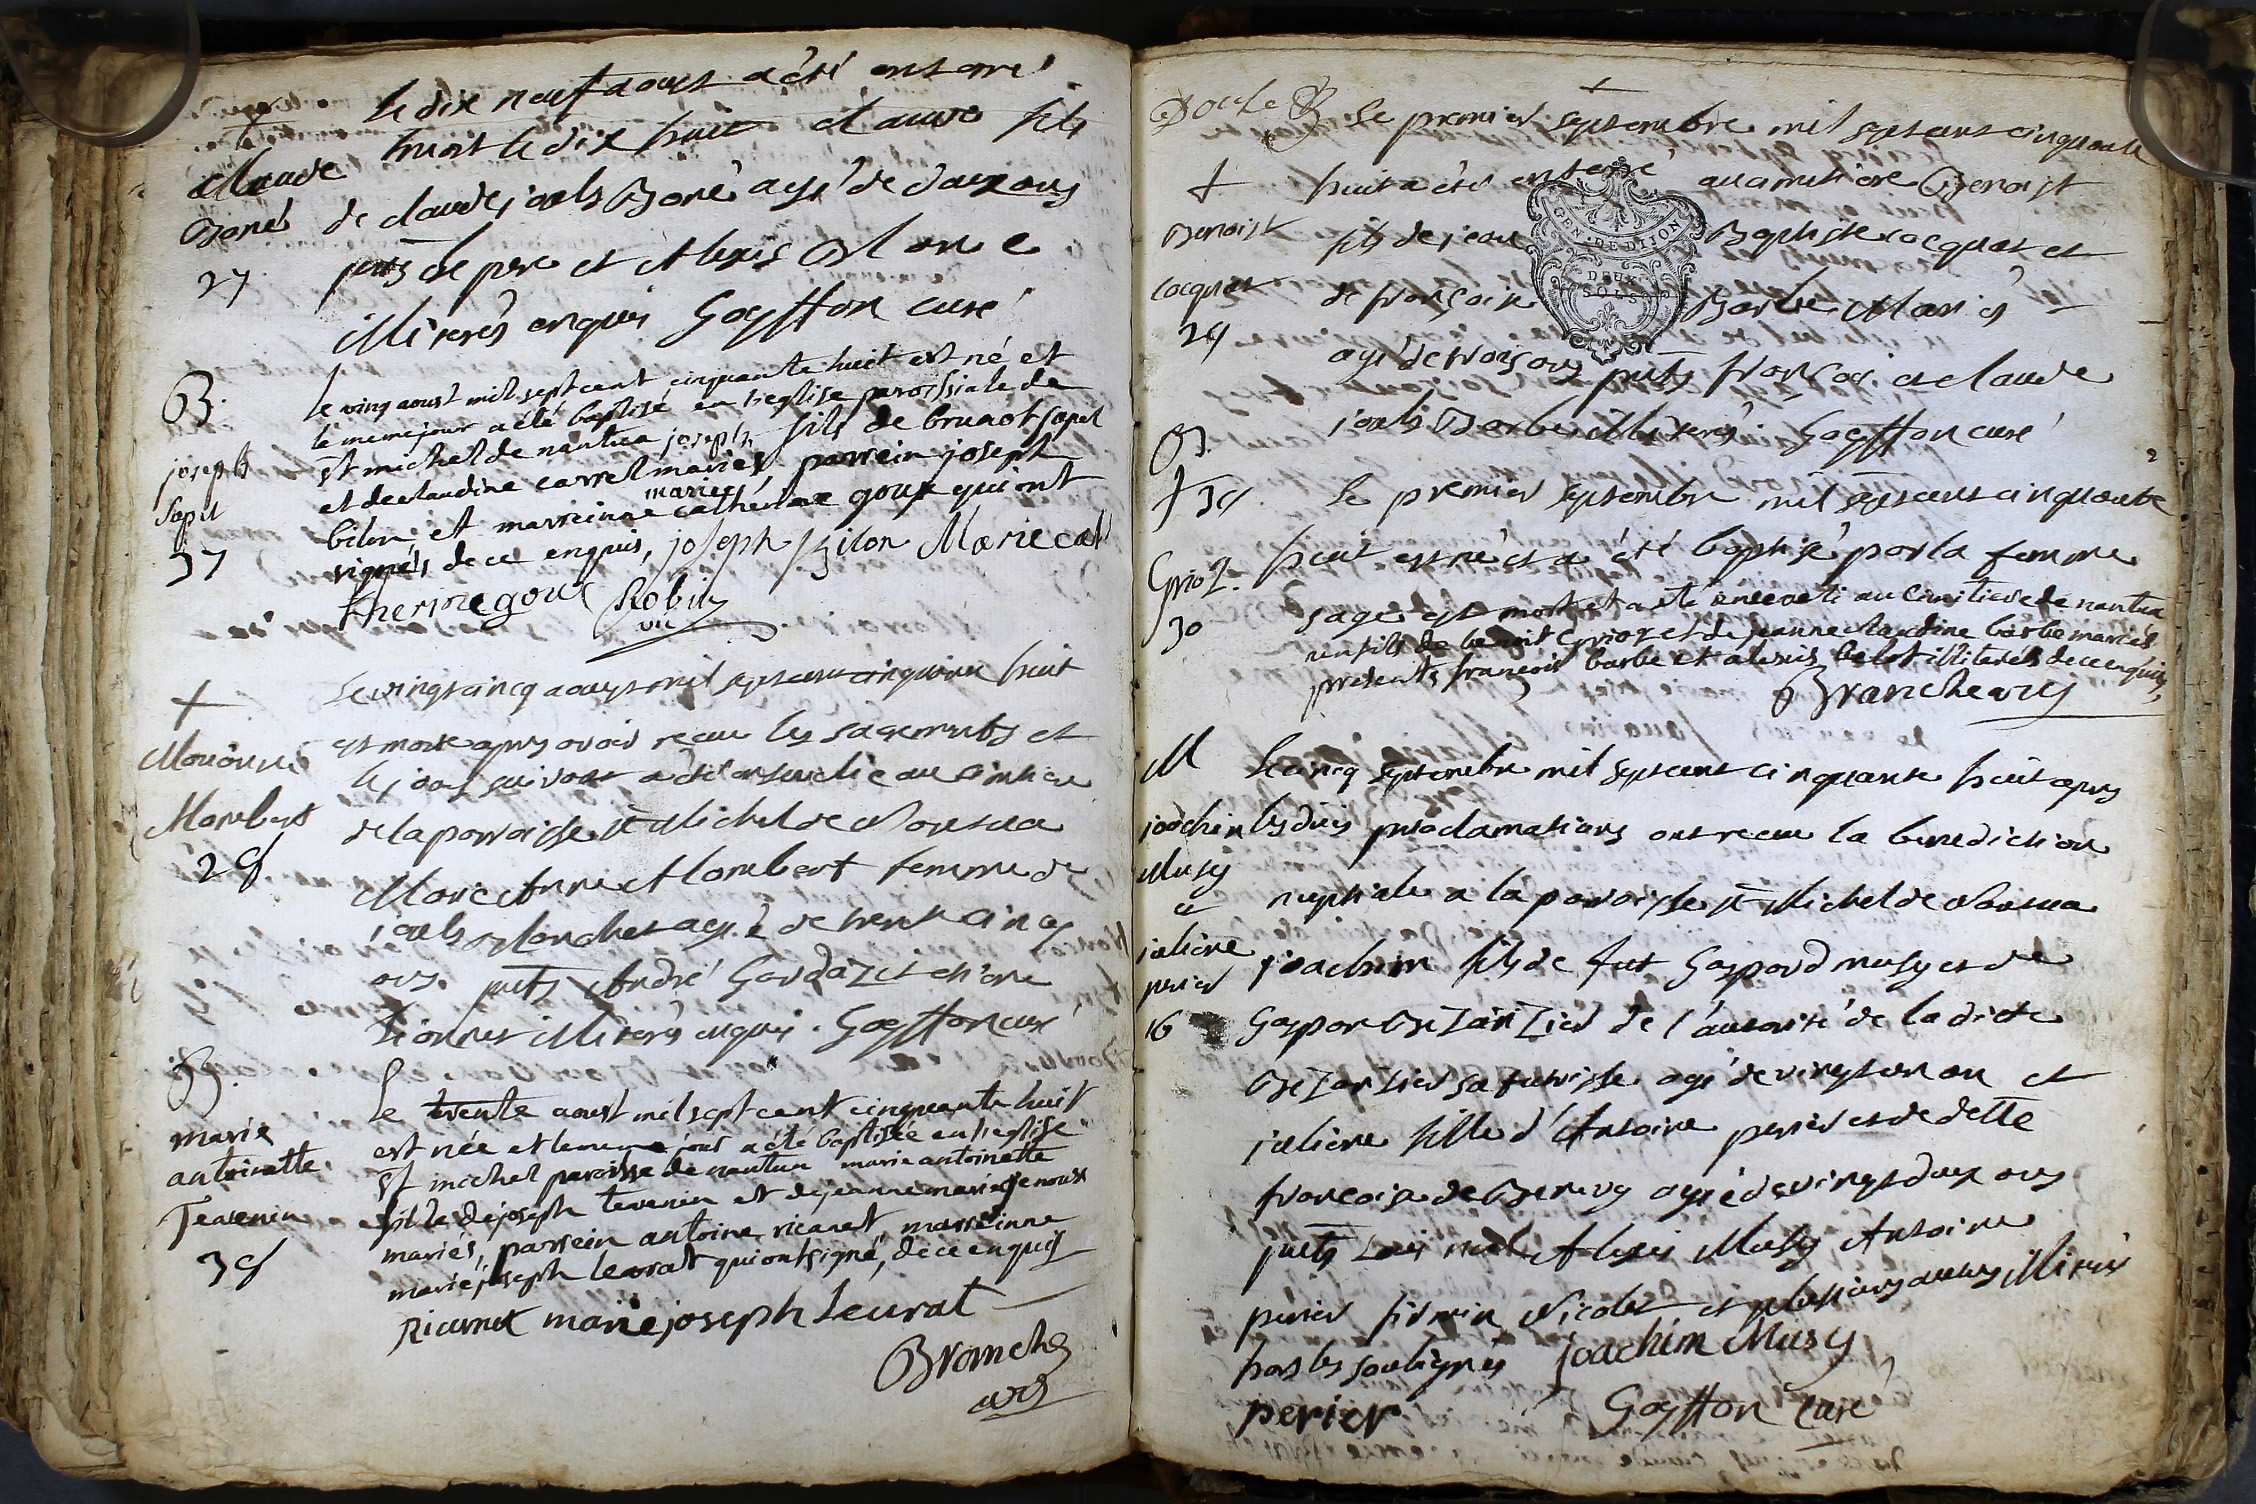 Claude
Boné
27
le dix neuf aoust a été enterré
mort le dix huit claude fils
de claude joals Boné agé de deux ans
pnts le pere et Alexis
illiterés enquis Goyffon curé
B.
joseph
sapit
37
le ving aoust mil sept cent cinquante huit est né et
le meme jour a été baptisé en l'eglise paroissiale de
st michel de nantua joseph fils de brunot sapit
et declaudine carrel mariés, parrein joseph
bilon et marreinne marie cathérine goux qui ont
signés de ce enquis, joseph Bilon Marie cat
therine goux Robin
vic
+
Marianne
Mambert
28
Le vingt cinq aoust mil sept cent cinquante huit
est morte apres avoir receu les sacements et
le jour suivant a été ensevelie au cimitiere
de la parroisse st Michel de Nantua
Marie Anne Mambert femme de
agé de trente cinq
ans. pnts André Gardaz et
illiterés enquis. Goyffon curé
B.
marie
antoinette
Tevenin
38
Le trente aoust mil sept cent cinquante huit
est née et le meme jour a été baptisée en l'eglise
st michel paroisse de nantua marie antoinette
fille de joseph tevenin et de jeanne marie jenoux
mariés, parrein antoine ricanet, marreinne
marie joseph leurat qui ont signé, de ce enquis
Ricanet marie joseph Leurat
Branche
vic
Le premier septembre mil sept cent cinquante
+
Benoist
cocquet
29
huit a été enterré au cimitiere Benoist
fils de jean Baptiste cocquet et
de françoise Barbe Mariés
agé de trois ans pnts françois et claude
joals Barbe illiterés Goyffon curé
GEN. DE DIJON
DEUX
SOLS
B.
+ 39
Gprioz.
30
Le premier septembre mil sept cent cinquante
huit est né et a été baptisé par la femme
sage est mort et a été enseveli au cimitiere de nantua
un fils de benoit gprioz et de jeanne claudine barbe mariés
presents françois barbe et alexis belot illiterés de ce enquis,
Branche vic
M
joachin
Musy
et
juliene
perier
16
Le cinq septembre mil sept cent cinquante huit apres
les dües proclamations ont receu la benediction
nuptiale a la parroisse st Michel de Nantua
joachim fils de fut Gaspard musy et de
Gaspar Bezanzier de l'autorité de la dite
Bezanzier sa tutrisse agé de vingt un an et
juliene fille d'Antoine perier et de dette
francoise de Beruvy agée de vingt deux ans
pnts Louis niel Alexis Musy Antoine
perier firmin Nicolet et plusieurs autres illiterés
hors les soubsignés joachim Musy
perier Goyffon curé